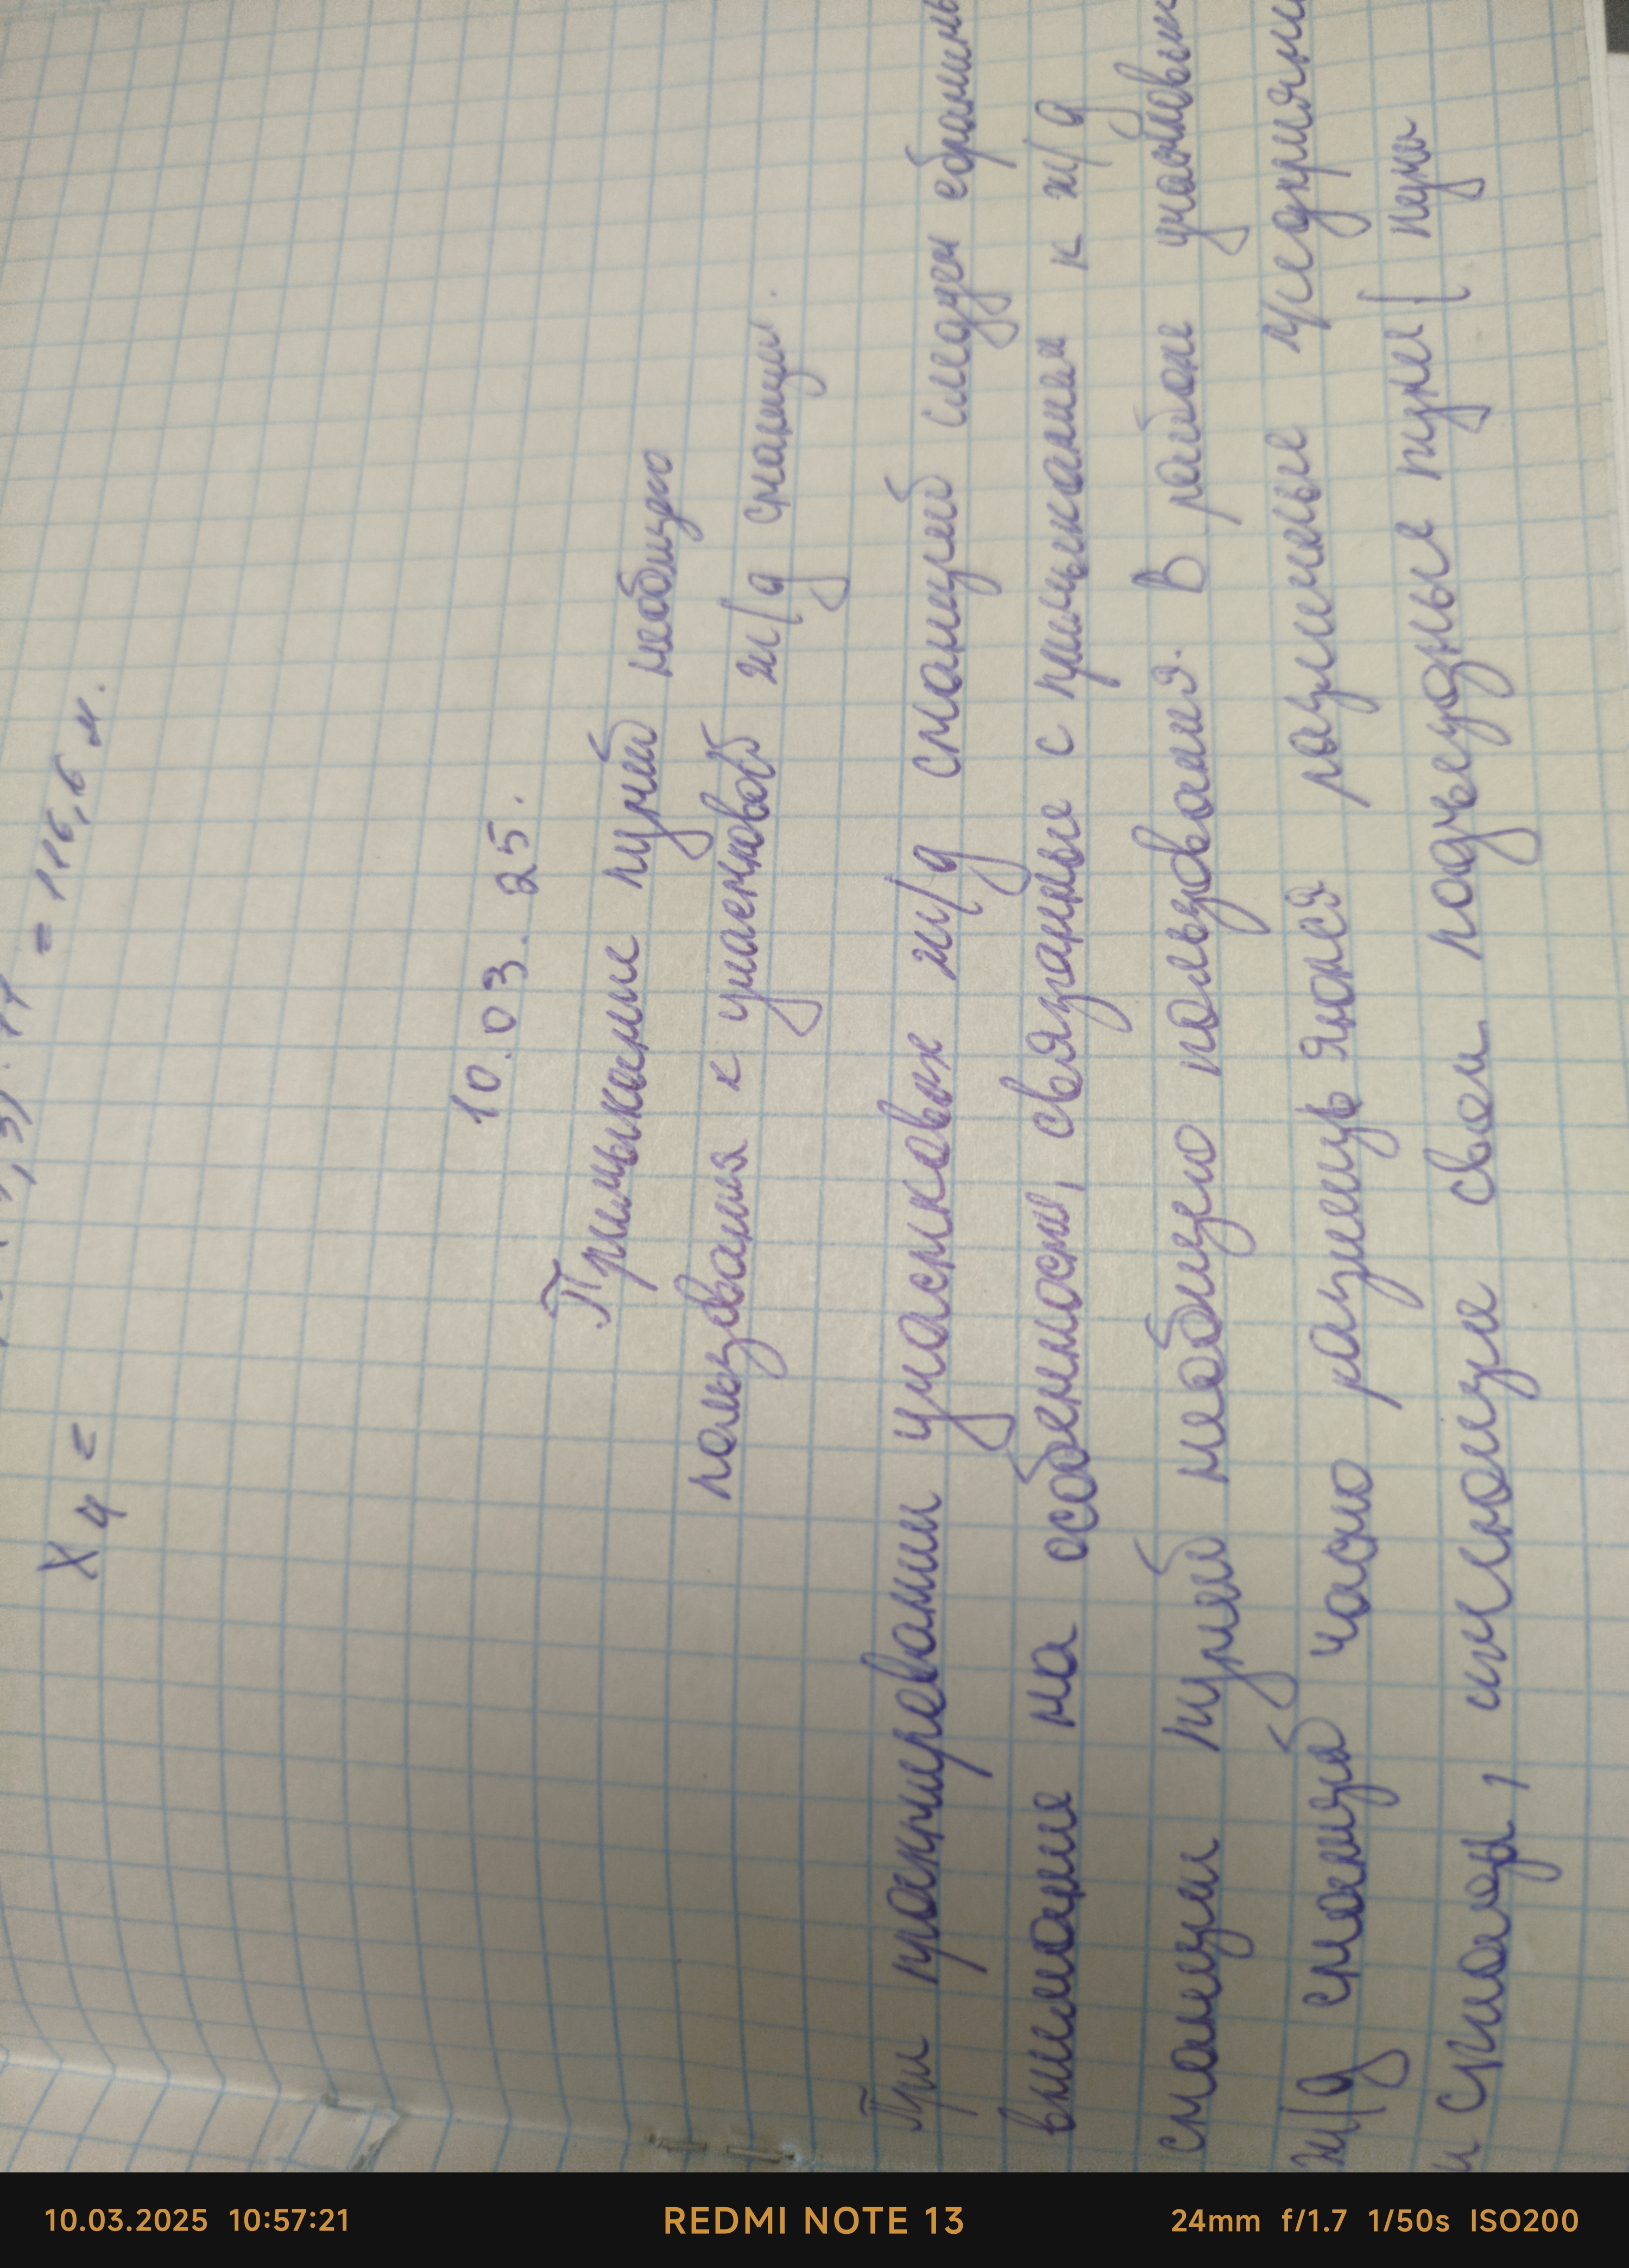 X4 = = 116,6 м.
10.03.25.
Примыкание путей необщего
пользования к участковой ж/д станции.
При проектировании участковых ж/д станций следует обратить
внимание на особенности, связанные с примыканием к ж/д
станции путей необщего пользования. В районе участковых
ж/д станций часто размещаются различные предприятия
и склады, имеющие свои подъездные пути [пути
10.03.2025 10:57:21 REDMI NOTE 13 24mm f/1.7 1/50s ISO200